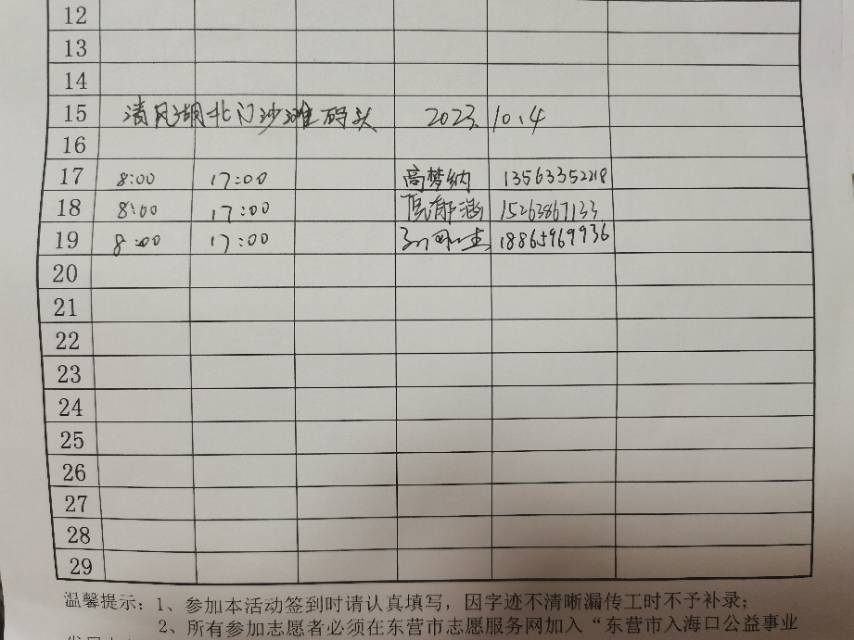 12
13
14
15 清风湖北门沙滩码头 2023.10.4
16
17 8:00 17:00 高梦纳 13563352218
18 8:00 17:00 15263867133
19 8:00 17:00 18865969936
20
21
22
23
24
25
26
27
28
29
温馨提示：1、参加本活动签到时请认真填写，因字迹不清晰漏传工时不予补录；
2、所有参加志愿者必须在东营市志愿服务网加入“东营市入海口公益事业